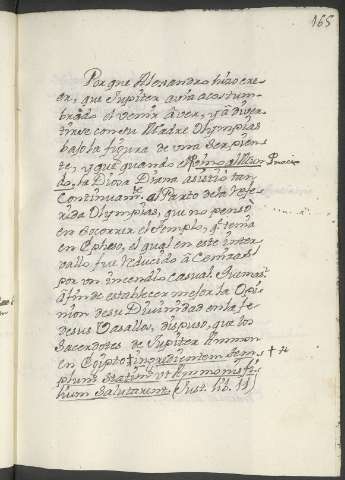 165
Porque Alexandro hizo cre-
er, que Jupiter avia acostum-
brado el venir à ver, y à diver-
tirse con su Madre Olympias
bajo la figura de una Serpien-
te, y que quando Nacio
la Diosa Diana asistió tan
Continuam.te al Parto de la refe-
rida Olympias, que no pensò
en Socorrer el Templo, q.e tenia
en Epheso, el qual en este inter-
vallo fue reducido à Cenizas
por un incendio casual. Ademas
à fin de establecer mejor la Opi-
nion de su Divinidad en la fe
de sus Vasallos, dispuso, que los
Sacerdotes de Jupiter Ammon
en Egipto ingredientem Tem-
plum statim ut Ammonis fi-
lium Salutarunt (Just. lib. 11)